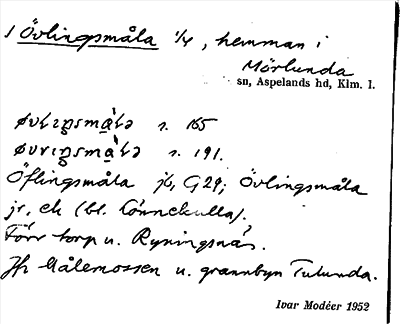 1 Övlingsmåla ¼, hemman i
Mörlunda
sn, Aspelands hd, Klm. l.
s. 165
s. 191.
Öflingsmåla jb, G 29; Övlingsmåla
jr, ek (bl. Connekulla).
Förr torp u. Ryningsnäs.
Jfr Målemossen u. grannbyn Tulunda.
Ivar Modéer 1952